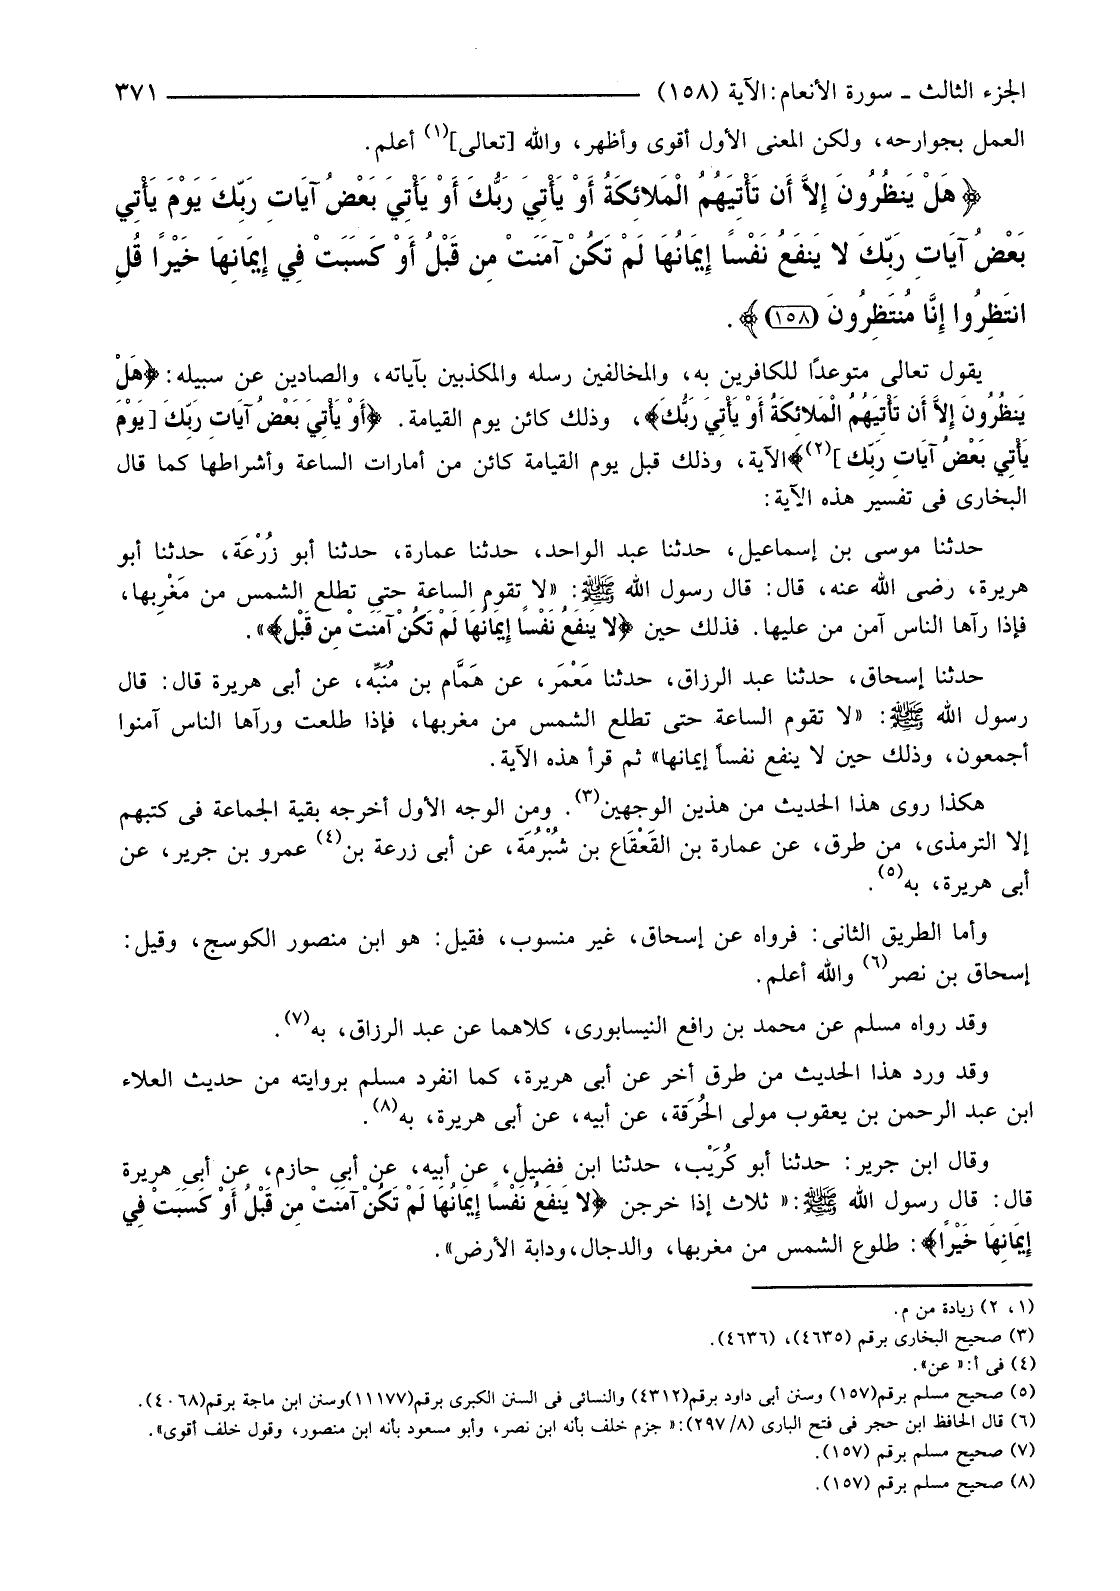 الجزء الثالث ـ سورة الأنعام: الآية (١٥٨) ٣٧١
العمل بجوارحه، ولكن المعنى الأول أقوى وأظهر، والله [تعالى](١) أعلم.
﴿هَلْ يَنظُرُونَ إِلاَّ أَن تَأْتِيَهُمُ الْمَلائِكَةُ أَوْ يَأْتِيَ رَبُّكَ أَوْ يَأْتِيَ بَعْضُ آيَاتِ رَبِّكَ يَوْمَ يَأْتِي
بَعْضُ آيَاتِ رَبِّكَ لا يَنفَعُ نَفْسًا إِيمَانُهَا لَمْ تَكُنْ آمَنَتْ مِن قَبْلُ أَوْ كَسَبَتْ فِي إِيمَانِهَا خَيْرًا قُلِ
انتَظِرُوا إِنَّا مُنتَظِرُونَ (١٥٨)﴾.
يقول تعالى متوعدًا للكافرين به، والمخالفين رسله والمكذبين بآياته، والصادين عن سبيله: ﴿هَلْ
يَنظُرُونَ إِلاَّ أَن تَأْتِيَهُمُ الْمَلائِكَةُ أَوْ يَأْتِيَ رَبُّكَ﴾، وذلك كائن يوم القيامة. ﴿أَوْ يَأْتِيَ بَعْضُ آيَاتِ رَبِّكَ [يَوْمَ
يَأْتِي بَعْضُ آيَاتِ رَبِّكَ](٢)﴾الآية، وذلك قبل يوم القيامة كائن من أمارات الساعة وأشراطها كما قال
البخارى فى تفسير هذه الآية:
حدثنا موسى بن إسماعيل، حدثنا عبد الواحد، حدثنا عمارة، حدثنا أبو زُرْعَة، حدثنا أبو
هريرة، رضى الله عنه، قال: قال رسول الله ﷺ: «لا تقوم الساعة حتى تطلع الشمس من مَغْرِبها،
فإذا رآها الناس آمن من عليها. فذلك حين ﴿لا يَنفَعُ نَفْسًا إِيمَانُهَا لَمْ تَكُنْ آمَنَتْ مِن قَبْل﴾».
حدثنا إسحاق، حدثنا عبد الرزاق، حدثنا مَعْمَر، عن هَمَّام بن مُنَبِّه، عن أبى هريرة قال: قال
رسول الله ﷺ: «لا تقوم الساعة حتى تطلع الشمس من مغربها، فإذا طلعت ورآها الناس آمنوا
أجمعون، وذلك حين لا ينفع نفساً إيمانها» ثم قرأ هذه الآية.
هكذا روى هذا الحديث من هذين الوجهين(٣). ومن الوجه الأول أخرجه بقية الجماعة فى كتبهم
إلا الترمذى، من طرق، عن عمارة بن القَعْقَاع بن شُبْرُمَة، عن أبى زرعة بن(٤) عمرو بن جرير، عن
أبى هريرة، به(٥).
وأما الطريق الثانى: فرواه عن إسحاق، غير منسوب، فقيل: هو ابن منصور الكوسج، وقيل:
إسحاق بن نصر(٦) والله أعلم.
وقد رواه مسلم عن محمد بن رافع النيسابورى، كلاهما عن عبد الرزاق، به(٧).
وقد ورد هذا الحديث من طرق أخر عن أبى هريرة، كما انفرد مسلم بروايته من حديث العلاء
ابن عبد الرحمن بن يعقوب مولى الحُرَقَة، عن أبيه، عن أبى هريرة، به(٨).
وقال ابن جرير: حدثنا أبو كُرَيْب، حدثنا ابن فضيل، عن أبيه، عن أبى حازم، عن أبى هريرة
قال: قال رسول الله ﷺ:« ثلاث إذا خرجن ﴿لا يَنفَعُ نَفْسًا إِيمَانُهَا لَمْ تَكُنْ آمَنَتْ مِن قَبْلُ أَوْ كَسَبَتْ فِي
إِيمَانِهَا خَيْرًا﴾: طلوع الشمس من مغربها، والدجال،ودابة الأرض».
(١، ٢) زيادة من م.
(٣) صحيح البخارى برقم (٤٦٣٥)، (٤٦٣٦).
(٤) فى أ:« عن».
(٥) صحيح مسلم برقم(١٥٧) وسنن أبى داود برقم(٤٣١٢) والنسائى فى السنن الكبرى برقم(١١١٧٧)وسنن ابن ماجة برقم(٤٠٦٨).
(٦) قال الحافظ ابن حجر فى فتح البارى (٨/ ٢٩٧):« جزم خلف بأنه ابن نصر، وأبو مسعود بأنه ابن منصور، وقول خلف أقوى».
(٧) صحيح مسلم برقم (١٥٧).
(٨) صحيح مسلم برقم (١٥٧).